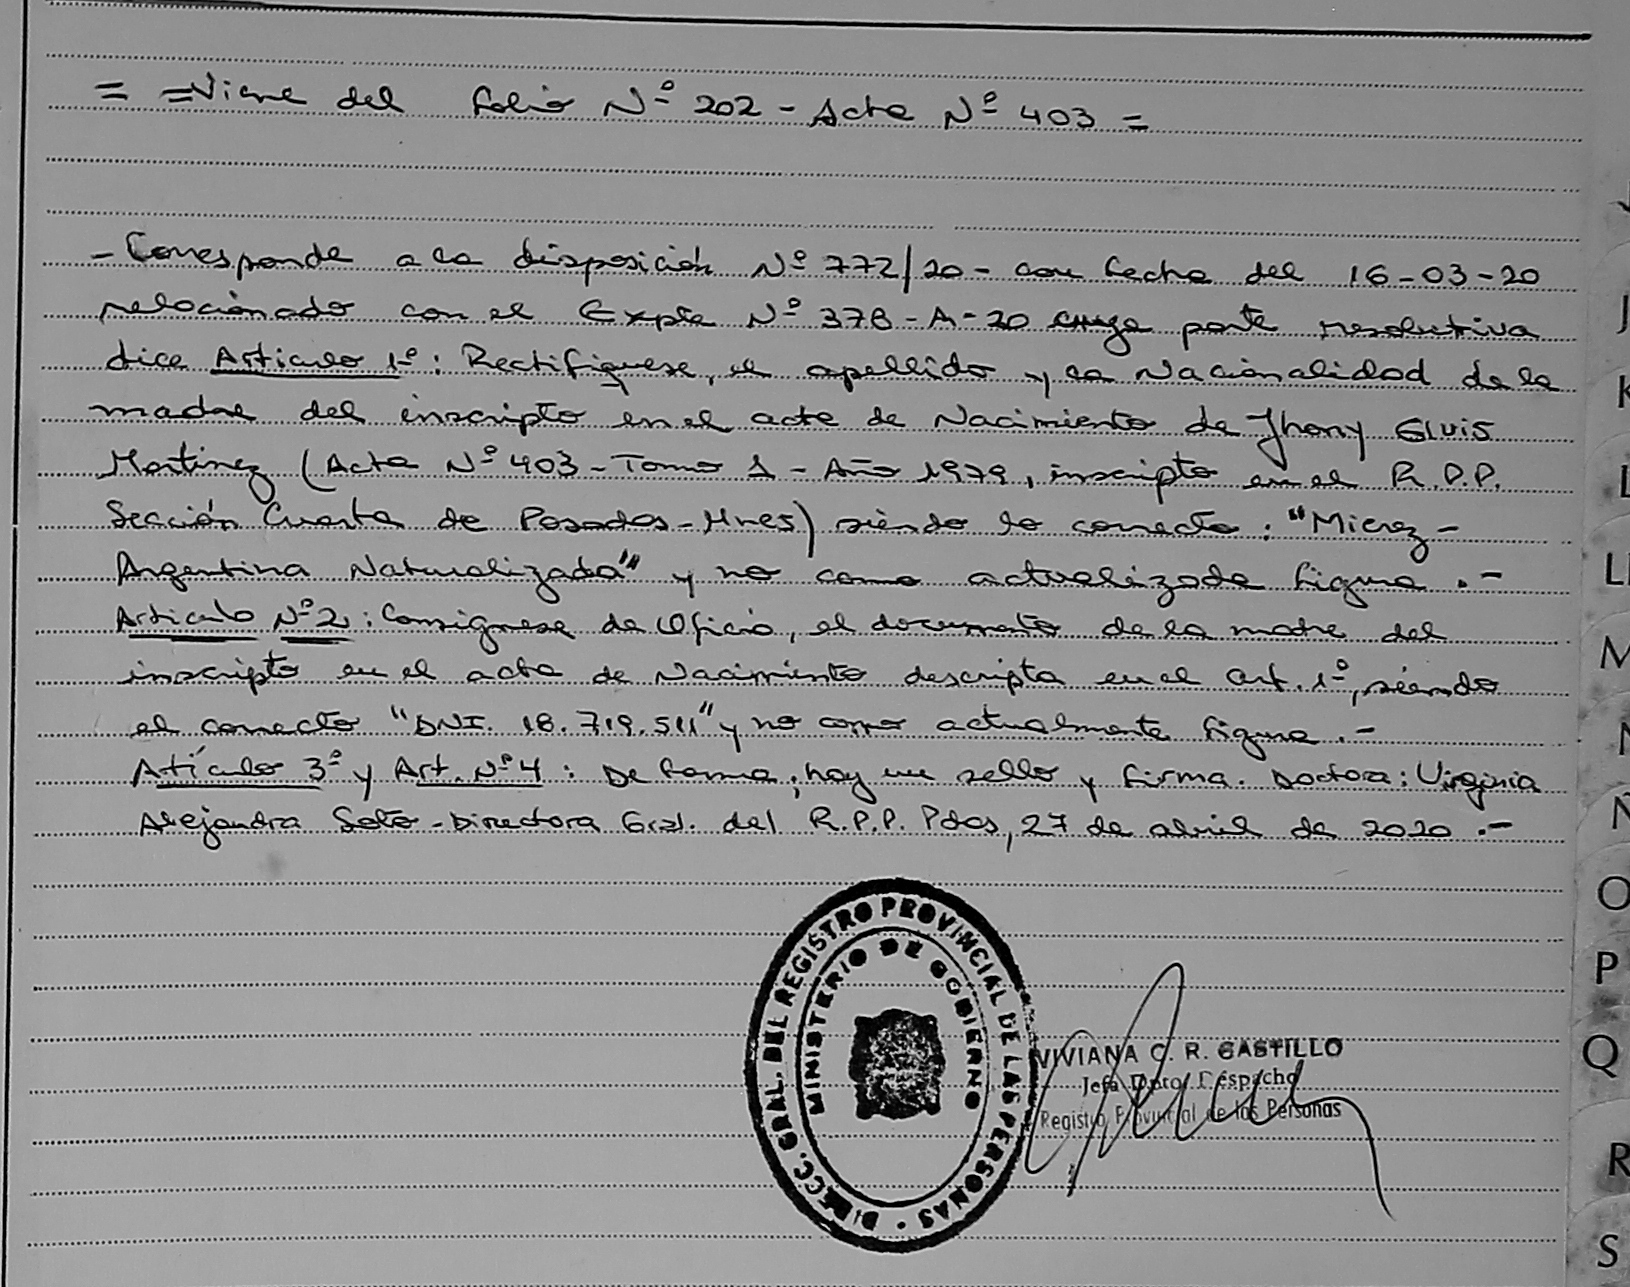 = =Viene del folio Nº 202 - Acta Nº 403 =
- Corresponde a la disposición Nº 772/20 - con fecha del 16-03-20
relacionado con el Expte Nº 378-A-20 cuya parte resolutiva
dice Artículo 1º: Rectifíquese, el apellido y la Nacionalidad de la
madre del inscripto en el acta de Nacimiento de Jhony Elvis
Martinez (Acta Nº 403 - Tomo 1 - Año 1979, inscripto en el R.P.P.
Sección Cuarta de Posadas - Mnes) siendo lo correcto: "Mierez -
Argentina Naturalizada" y no como actualizada figura .-
Artículo Nº 2: Consígnese de Oficio, el documento de la madre del
inscripto en el acta de Nacimiento descripta en el art. 1º, siendo
el correcto "DNI. 18.719.511" y no como actualmente figura .-
Artículo 3º y Art. Nº 4: De forma, hay un sello y firma. Doctora: Virginia
Alejandra Soto - Directora Gral. del R.P.P. Pdas, 27 de abril de 2020 .-
DIRECC. GRAL. DEL REGISTRO PROVINCIAL DE LAS PERSONAS
MINISTERIO DE GOBIERNO
VIVIANA C. R. CASTILLO
Jefa Dpto. Despacho
Registro Provincial de las Personas
J
K
L
LL
M
N
Ñ
O
P
Q
R
S